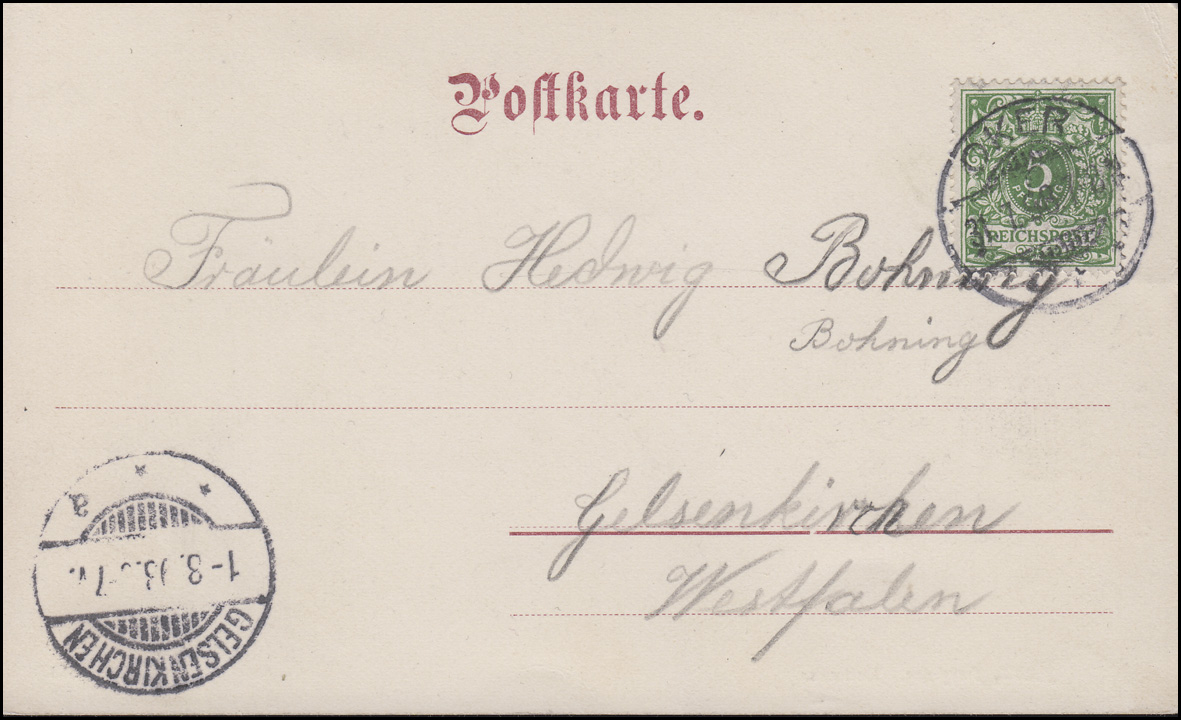 Postkarte.
OKER
5
PFENNIG
REICHSPOST
Fräulein Hedwig Bohning
Bohning
Gelsenkirchen
Westfalen
a
1-8.
GELSENKIRCHEN